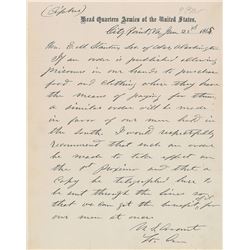 (Cipher)
Head Quarters Armies of the United States,
City Point, Va, Jan 21st 1865
Hon. E. M. Stanton Sec of War Washington
If an order is published allowing
prisoners in our hands to purchase
food and clothing where they have
the means of paying for them,
a similar order will be made
in favor of our men held in
the South. I would respectfully
recommend that such an order
be made to take effect on
the 1st Proximo and that a
copy be telegraphed here to
be sent through the lines so
that we can get the benefits for
our men at once.
U. S. Grant
Lt. Gen